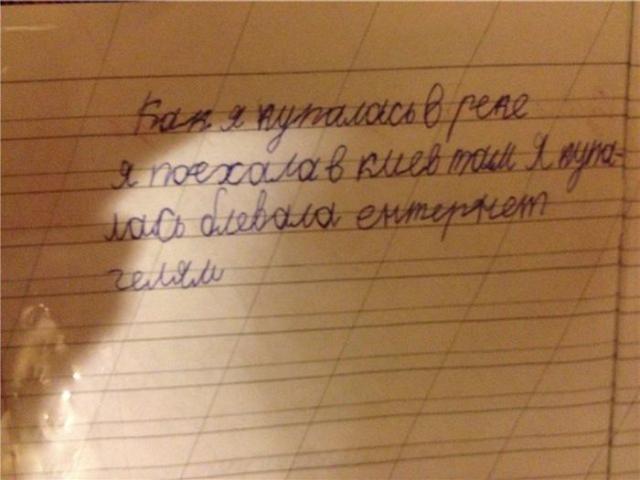 Как я купалась в реке
я поехала в киев там Я купа-
лась блевала ентернет
гелям